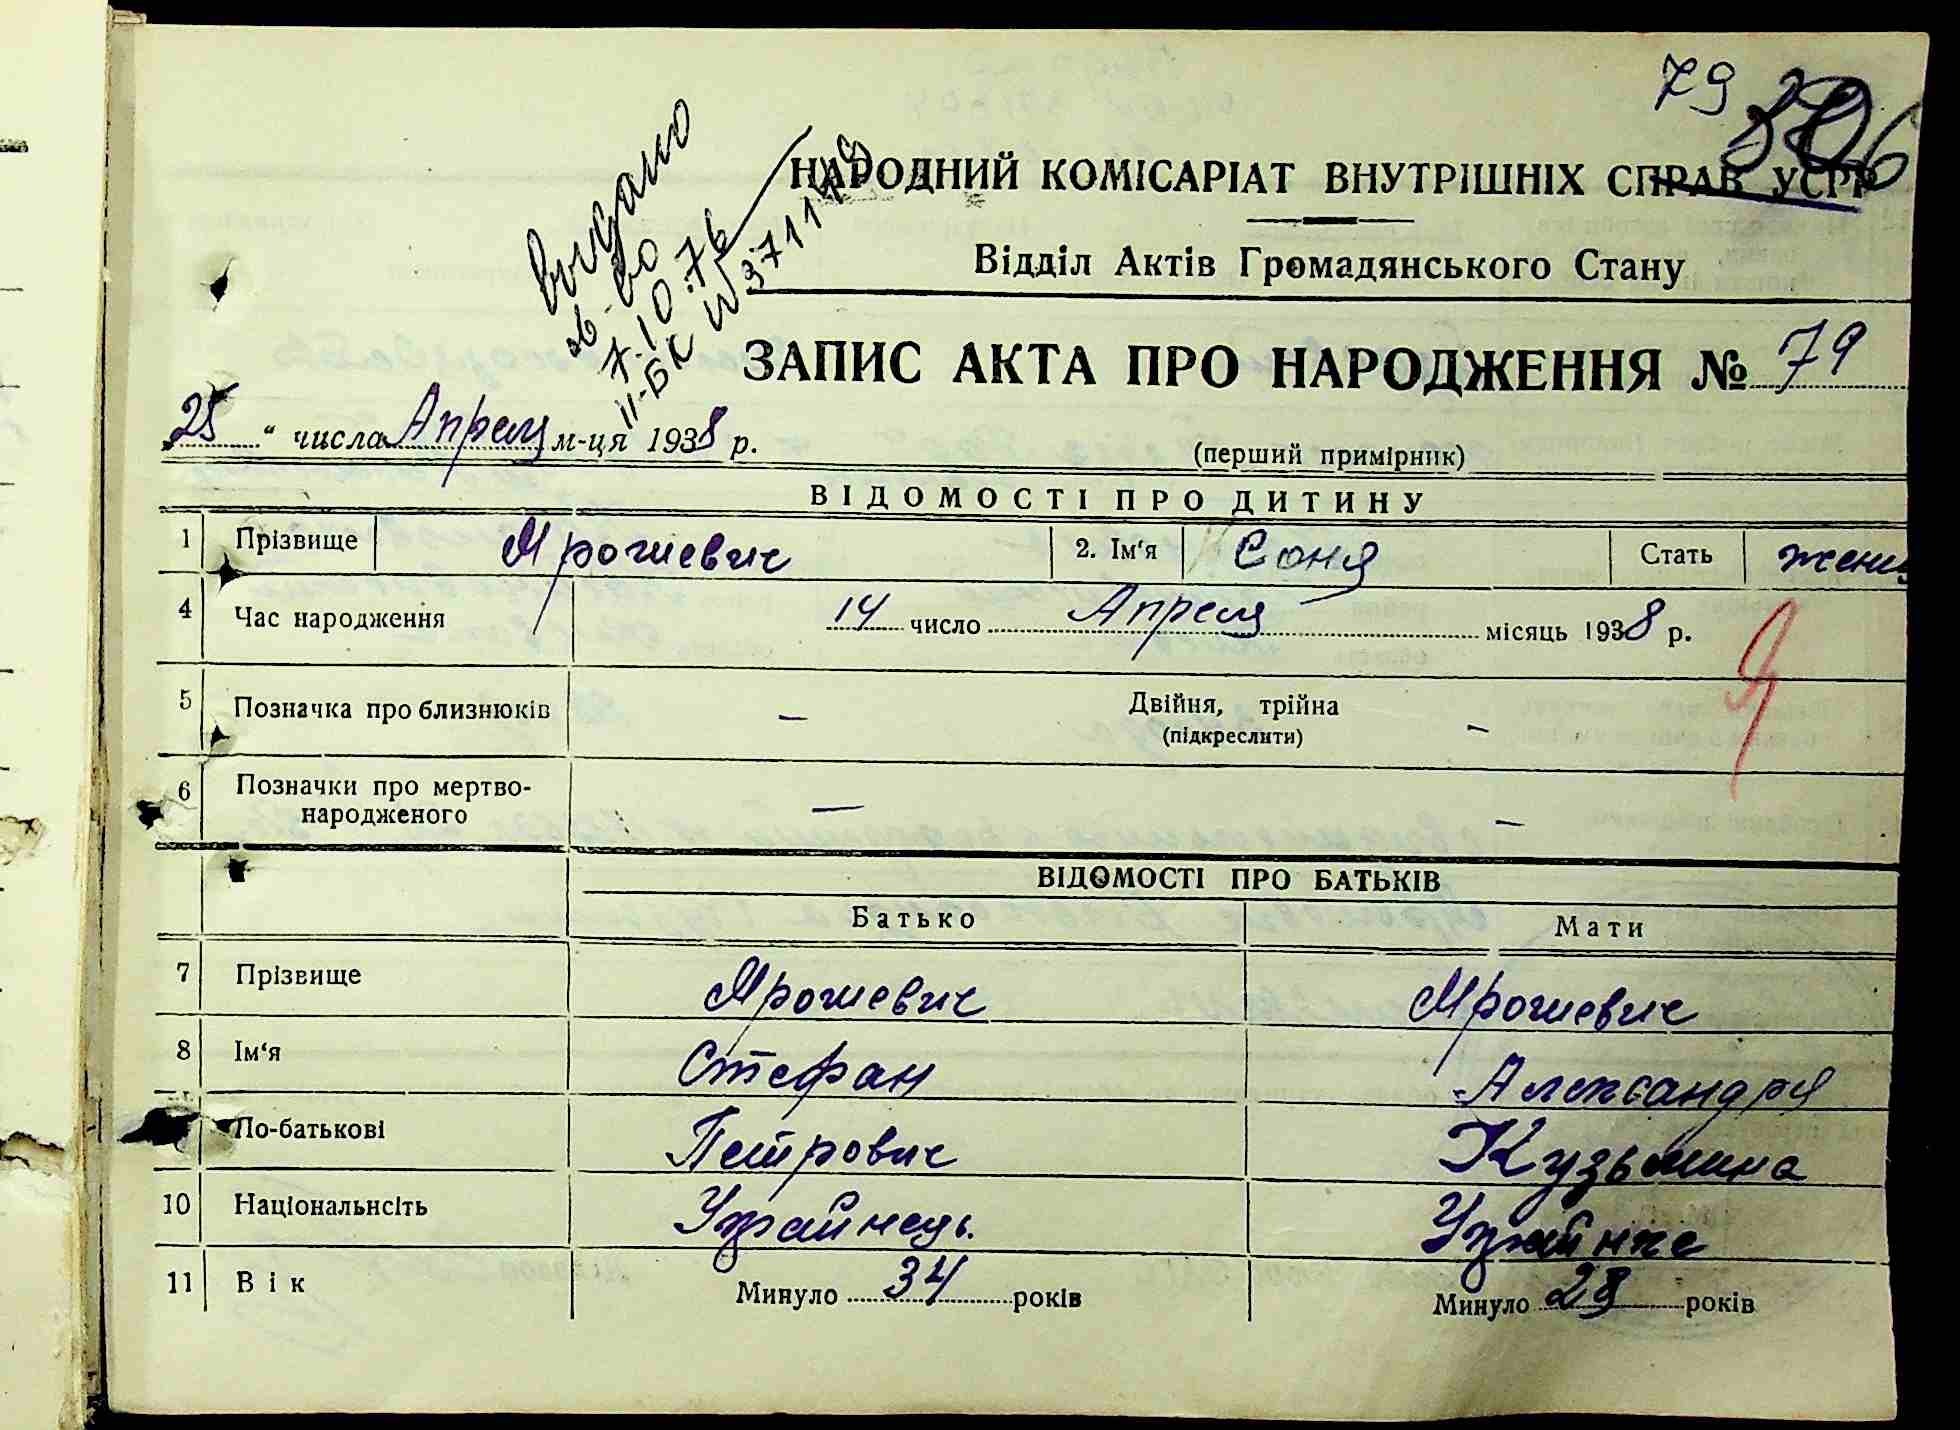 79
НАРОДНИЙ КОМІСАРІАТ ВНУТРІШНІХ СПРАВ УСРР
Відділ Актів Громадянського Стану
видано
7.10.76
ІІ-БК № 371148
ЗАПИС АКТА ПРО НАРОДЖЕННЯ № 79
„25“ числа Апреля м-ця 1938 р.
(перший примірник)
ВІДОМОСТІ ПРО ДИТИНУ
1 Прізвище Мрошевич 2. Ім‘я Соня Стать женс
4 Час народження 14 число Апреля місяць 1938 р.
5 Позначка про близнюків — Двійня, трійна —
(підкреслити)
6 Позначки про мертво-
народженого — —
ВІДОМОСТІ ПРО БАТЬКІВ
Батько Мати
7 Прізвище Мрошевич Мрошевич
8 Ім‘я Стефан Александра
По-батькові Петрович Кузьмина
10 Національнсіть Украйнець.
11 Вік Минуло 34 років Минуло 28 років